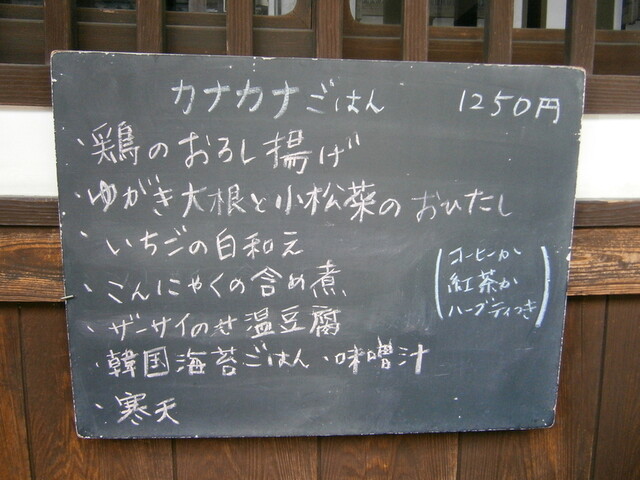 カナカナごはん 1250円
・鶏のおろし揚げ
・ゆがき大根と小松菜のおひたし
・いちごの白和え
・こんにゃくの含め煮
・ザーサイのせ温豆腐
・韓国海苔ごはん・味噌汁
・寒天
(コーヒーか
紅茶か
ハーブティつき)